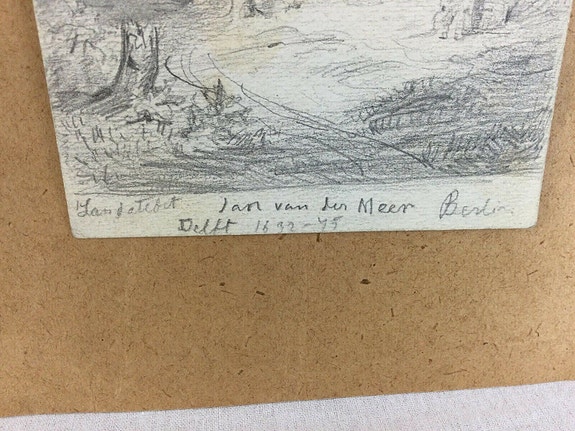 Jan van der Meer Berlin
Delft 1632-75